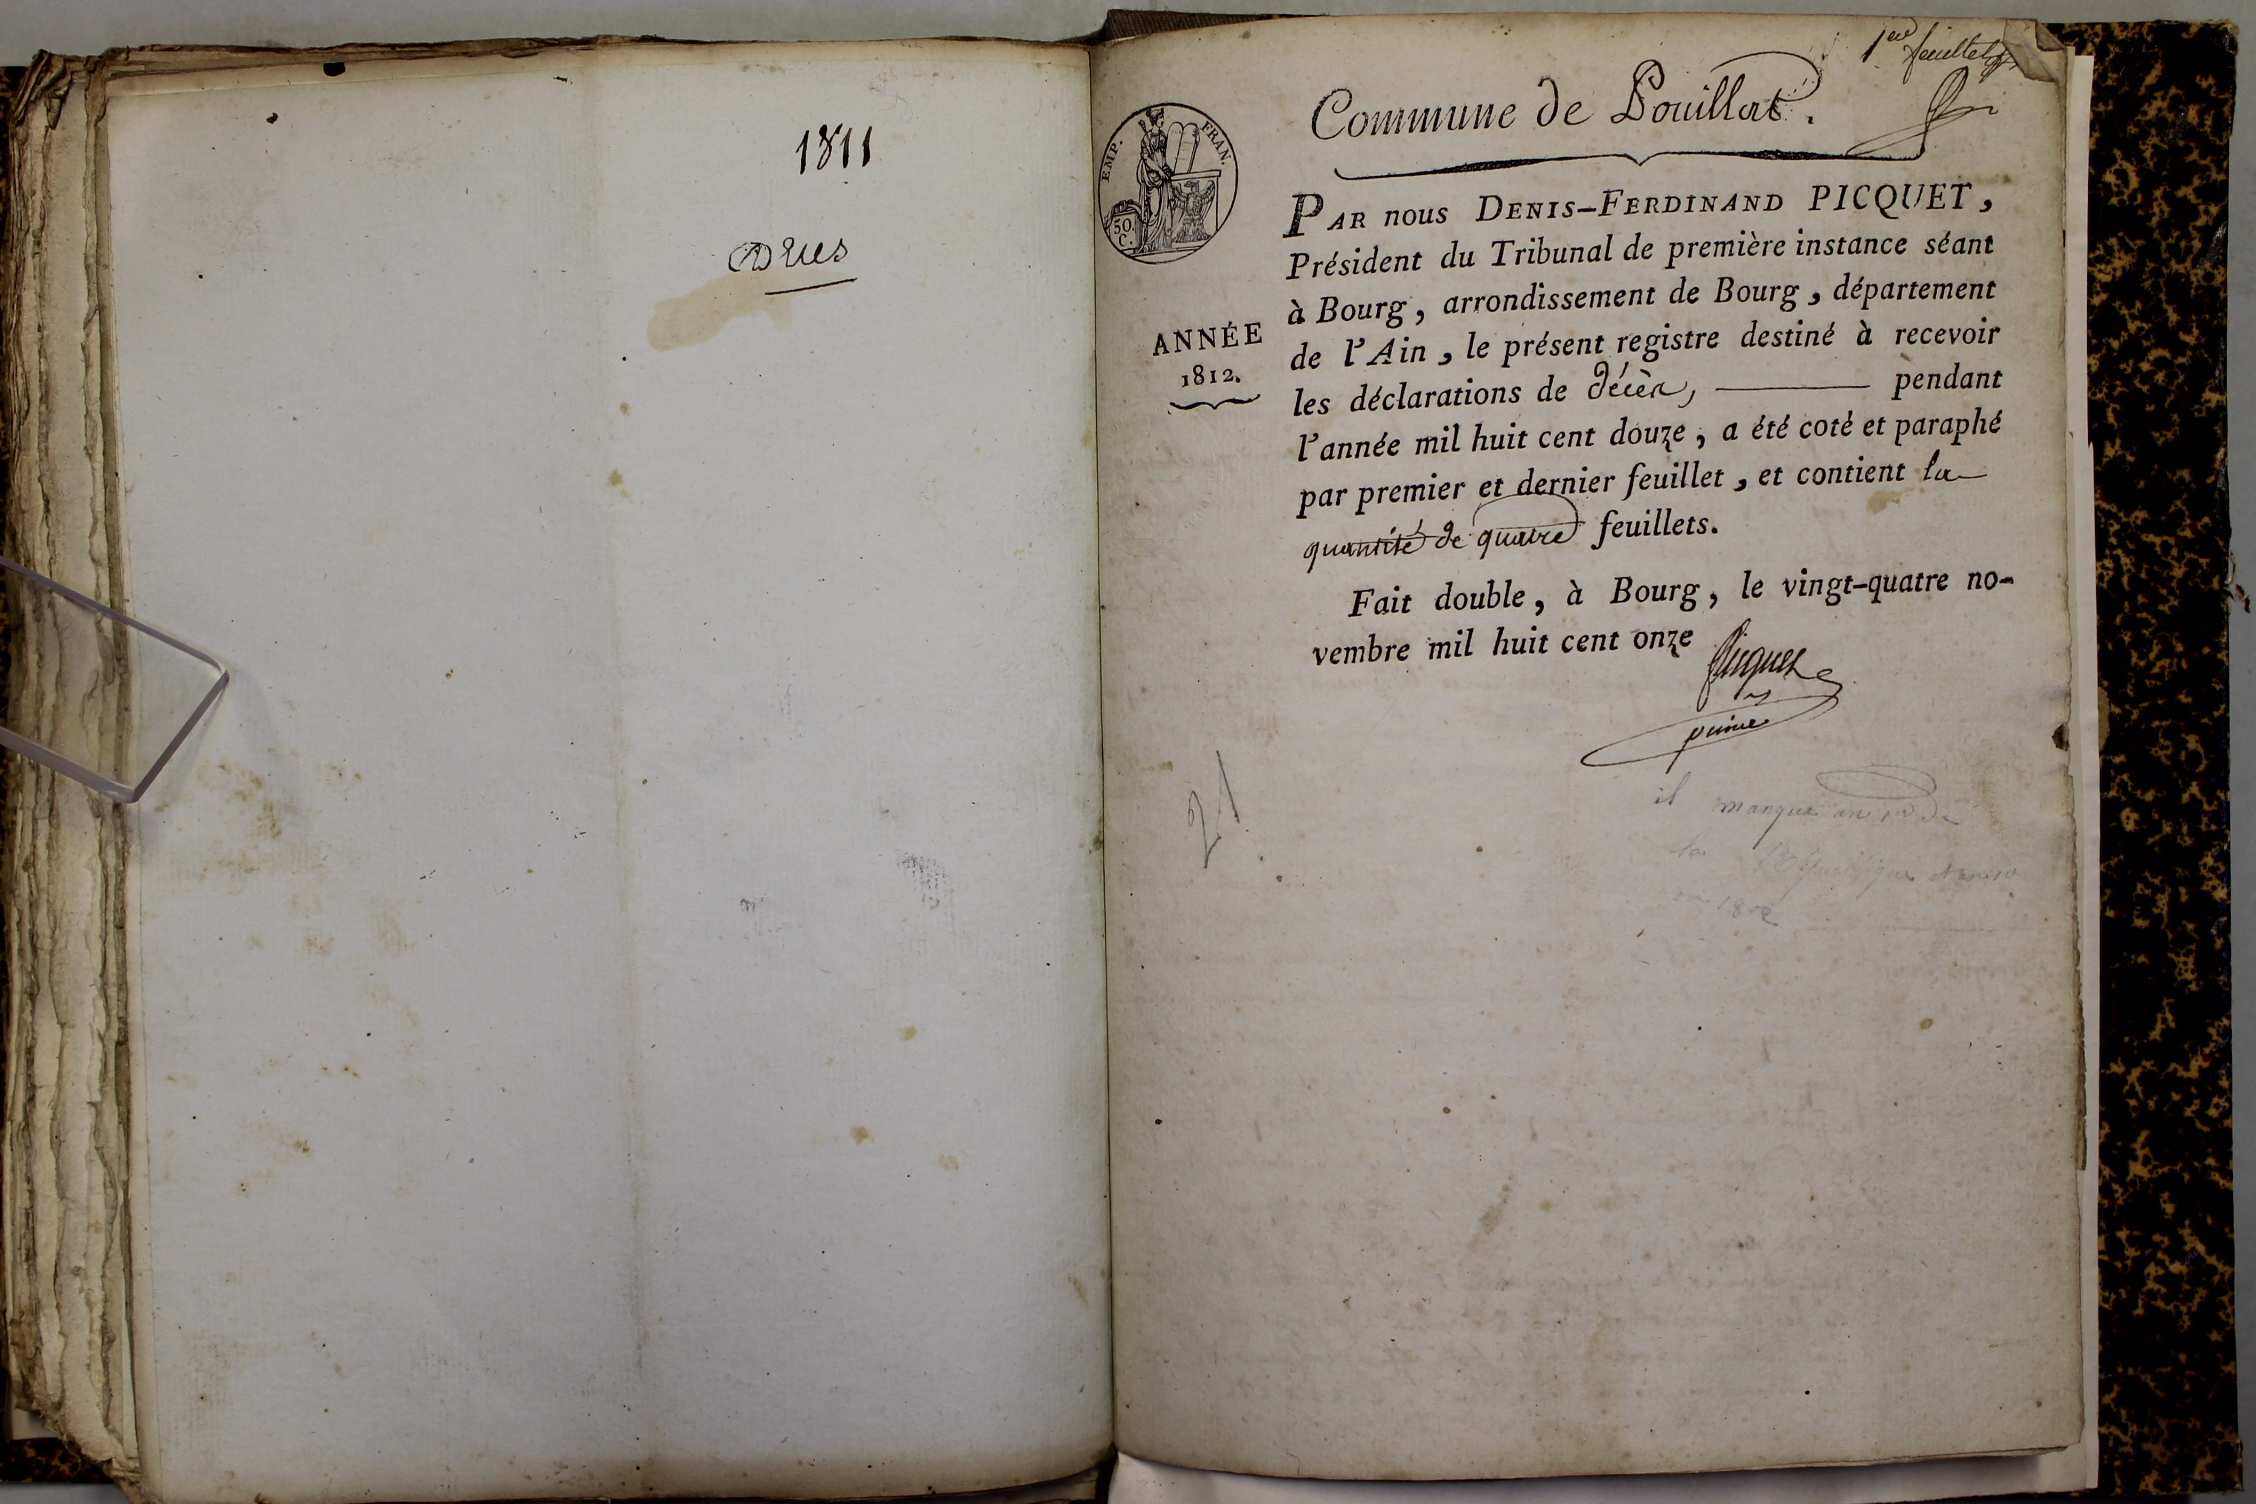 1811
1er feuillet
Commune de Pouillat.
EMP. FRAN.
50.
C.
ANNÉE
1812.
PAR nous DENIS-FERDINAND PICQUET,
Président du Tribunal de première instance séant
à Bourg, arrondissement de Bourg, département
de l'Ain, le présent registre destiné à recevoir
les déclarations de décès, pendant
l'année mil huit cent douze, a été coté et paraphé
par premier et dernier feuillet, et contient la
quantité de quatre feuillets.
Fait double, à Bourg, le vingt-quatre no-
vembre mil huit cent onze
Picquet
21
il manque
la